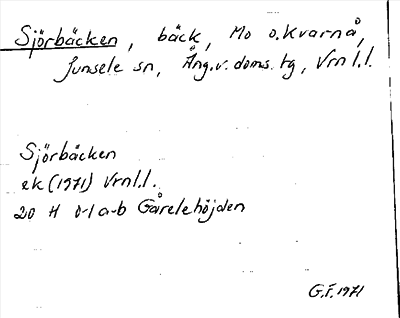 Sjörbäcken, bäck, Mo o. Kvarnå,
Junsele sn, Ång.v. doms. tg, Vrn l.l.
Sjörbäcken
ek (1971) Vrn l.l.
20 H 0-1 a-b Gårelehöjden
G.F. 1971